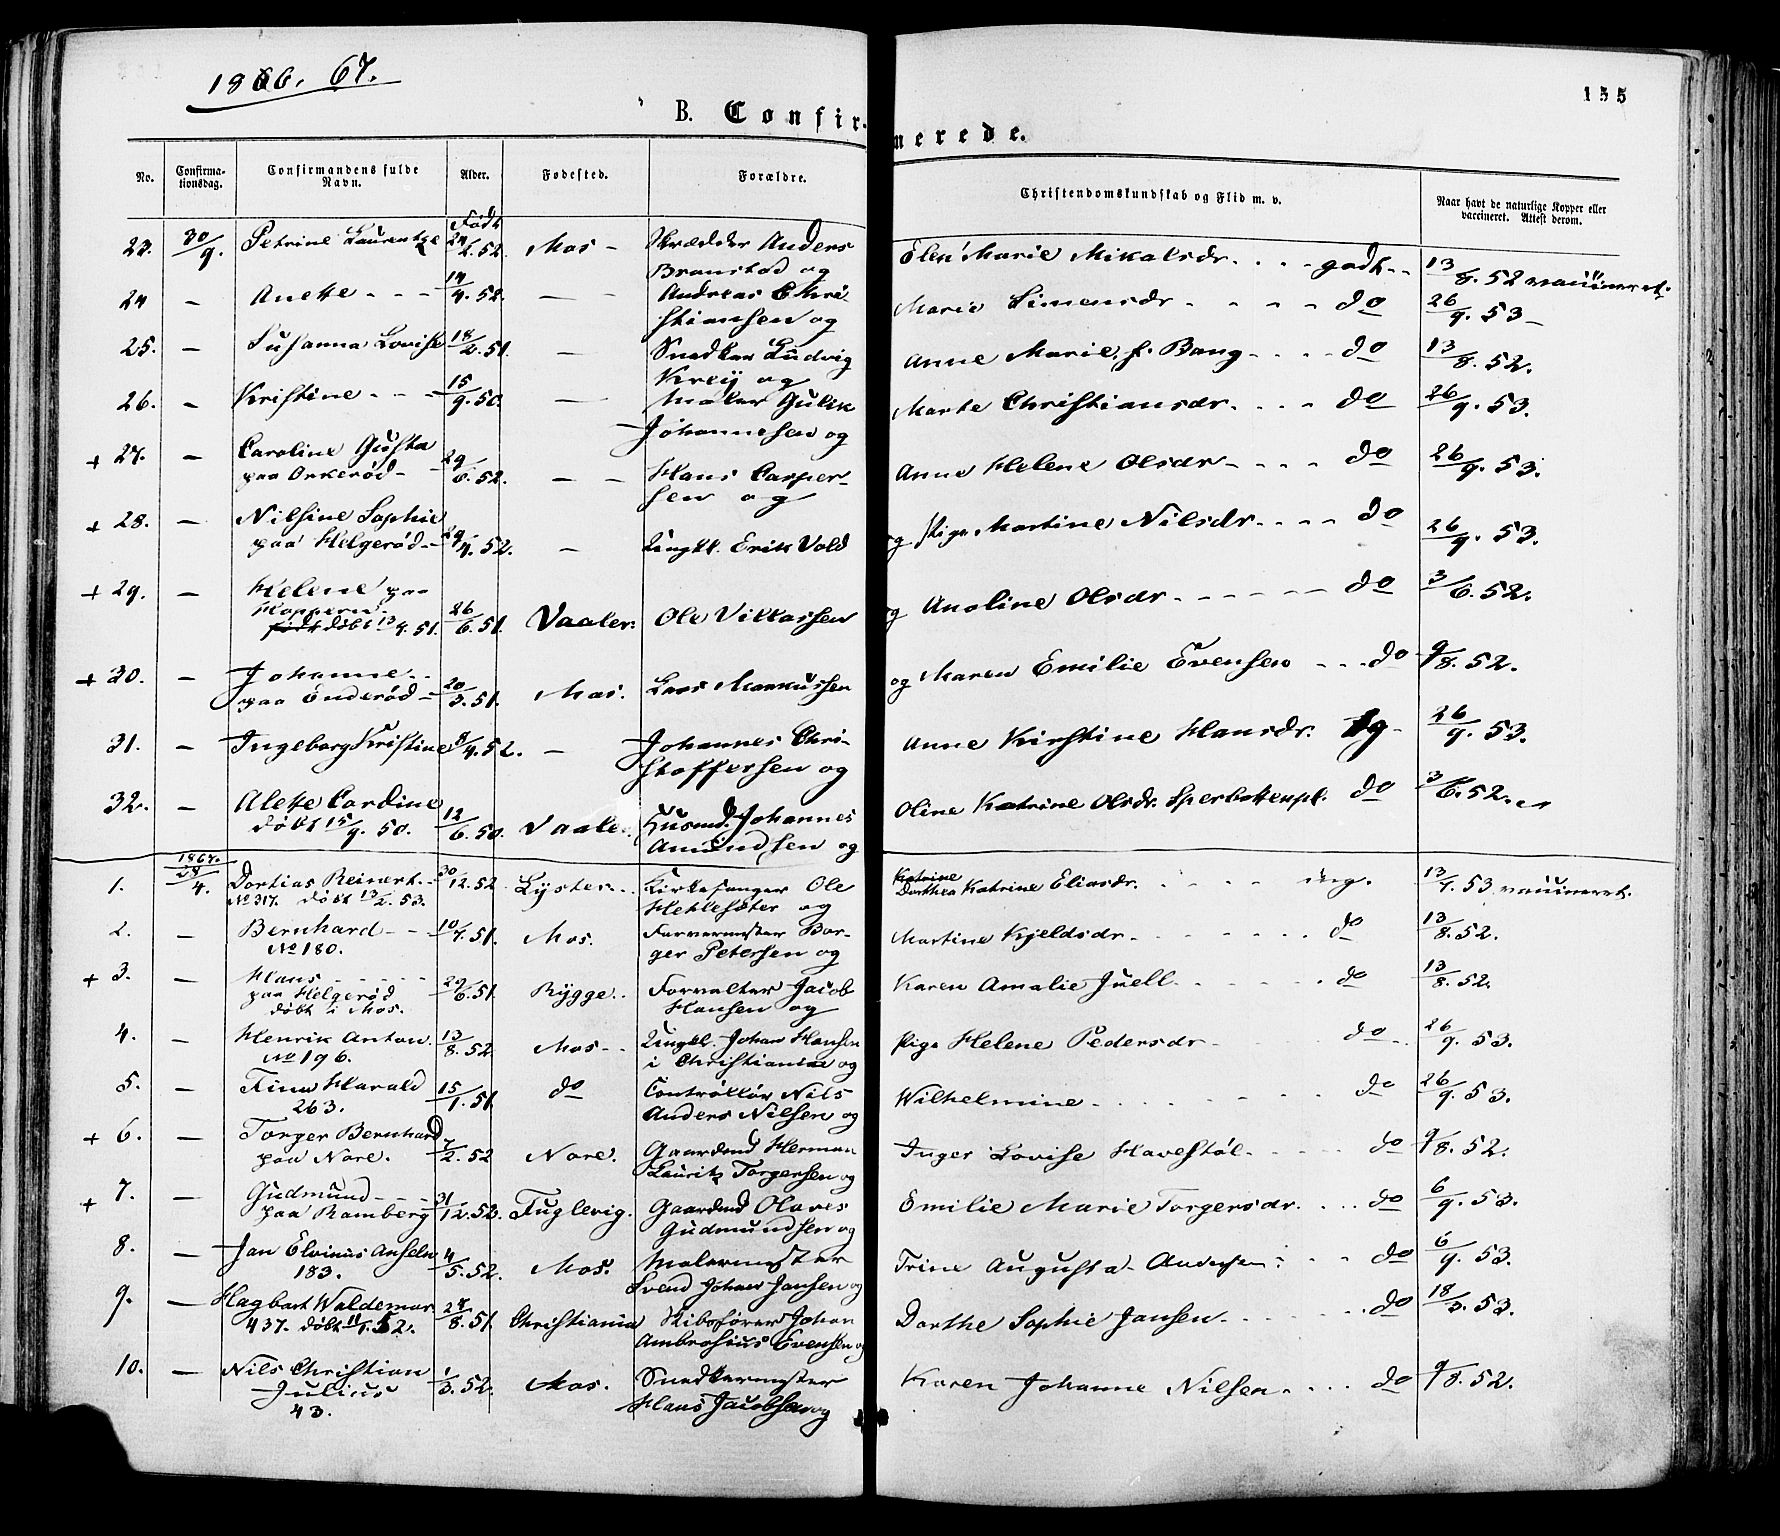 1866. 67.
155
B. Confir-
merede.
No.
Confirma-
tionsdag.
Confirmandens fulde
Navn.
Alder.
Fødested.
Forældre.
Christendomskundskab og Flid m. v.
Naar havt de naturlige Kopper eller
vaccineret. Attest derom.
Født
23. 30/9. Petrine Laurentze 24/2.52. Mos - Skrædder Anders Elen Marie Mikalsdr. . . . godt - - 13/8. 52 vaccineret.
Branstad og
24 - Anette - - - 14/4. 52. - Andreas Chri- Marie Simensdr - - - - do 26/9. 53 -
stiansen og
25. - Susanna Lovise 18/2. 51. - Snedker Ludvig Anne Marie, f. Bang - . . . do 13/8. 52.
Kreij og
26. - Kristine - - - 15/9. 50. - Maler Gulik Marte Christiansdr. . . . do 26/9. 53.
Johannesen og
+ 27. - Caroline Gusta
paa Orkerød - 29/6. 52. - - Hans Casper- Anne Helene Olsdr - . . . do 26/9. 53.
sen og
+ 28. - Nilsine Sophie
paa Helgerød - 29/4. 52. - Ungkl. Erik Vold og Pige Martine Nilsdr . . . - do 26/9. 53.
+ 29. - Helene paa
Hoppern.
født døbt 13/4. 51. 26/6. 51. Vaaler. Ole Viltassen og Anoline Olsdr - - - - - - do 3/6. 52.
+ 30. - Johanne - -
paa Enderød - 20/3. 51. Mos. Lars Markussen og Maren Emilie Evensen - . . do 9/8. 52.
31. - Ingeborg Kristine 8/4. 52. - Johannes Chri- Anne Kirstine Hansdr. tg - 26/9. 53.
stoffersen og
32. - Alette Cardine
døbt 15/9. 50. 12/6. 50. Vaaler. Husmd. Johannes Oline Katrine Olsdr. Sperbottenpl. do 3/6. 52.
Amundsen og
1867.
1. 28/4. Dortias Reinert - 30/12. 52. Lyster - . Kirkesanger Ole Katrine
Dorthea Katrine Eliasdr. . . . . mg. 13/7. 53 vaccineret.
No 317. døbt 13/2. 53. Hetlesæter og
2. - Bernhard - - 10/7. 51. Mos. Farvermester Bor- Martine Kjeldsdr. - . . . . . do 13/8. 52.
No 180. ger Petersen og
+ 3. - Hans - - - - -
paa Helgerød 29/6. 51. Rygge. . Forvalter Jacob Karen Amalie Juell . . . . . do 13/8. 52.
døbt i Mos. Hansen og
4. - Henrik Anton. 13/8. 52 Mos - - Ungkl. Johan Hansen Pige Helene Pedersdr - do 26/9. 53.
No 196. i Christiania og
5. - Finn Harald 15/1. 51. do Controllør Nils Wilhelmine - . . . . . . do 26/9. 53.
263. Anders Nilsen og
+ 6. - Torger Bernhard
paa Nore. 7/2. 52 Nore. Gaardmd Herman Inger Lovise Havestøl - . . . . do 9/8. 52.
Lauritz Torgersen og
+ 7. - Gudmund - - -
paa Ramberg 31/12. 52. Fuglevig. Gaardmd Olaves Emilie Marie Torgersdr. . . . do 6/9. 53.
Gudmundsen og
8. - Jan Elvinus Anseln 4/5. 52. Mos. Malermester Trine Augusta Andersen . . - do 6/9. 53.
183. Svend Johan Jansen og
9. - Hagbart Waldemar 24/8. 51. Christiania Skibsfører Johan Dorthe Sophie Jansen - . . . . do 18/3. 53.
437. døbt 11/1. 52. Ambrosius Evensen og
10. - Nils Christian 1/3. 52. Mos. Snedkermester Karen Johanne Nilsen - . . . do 9/8. 52.
Julius
43. Hans Jacobsen og